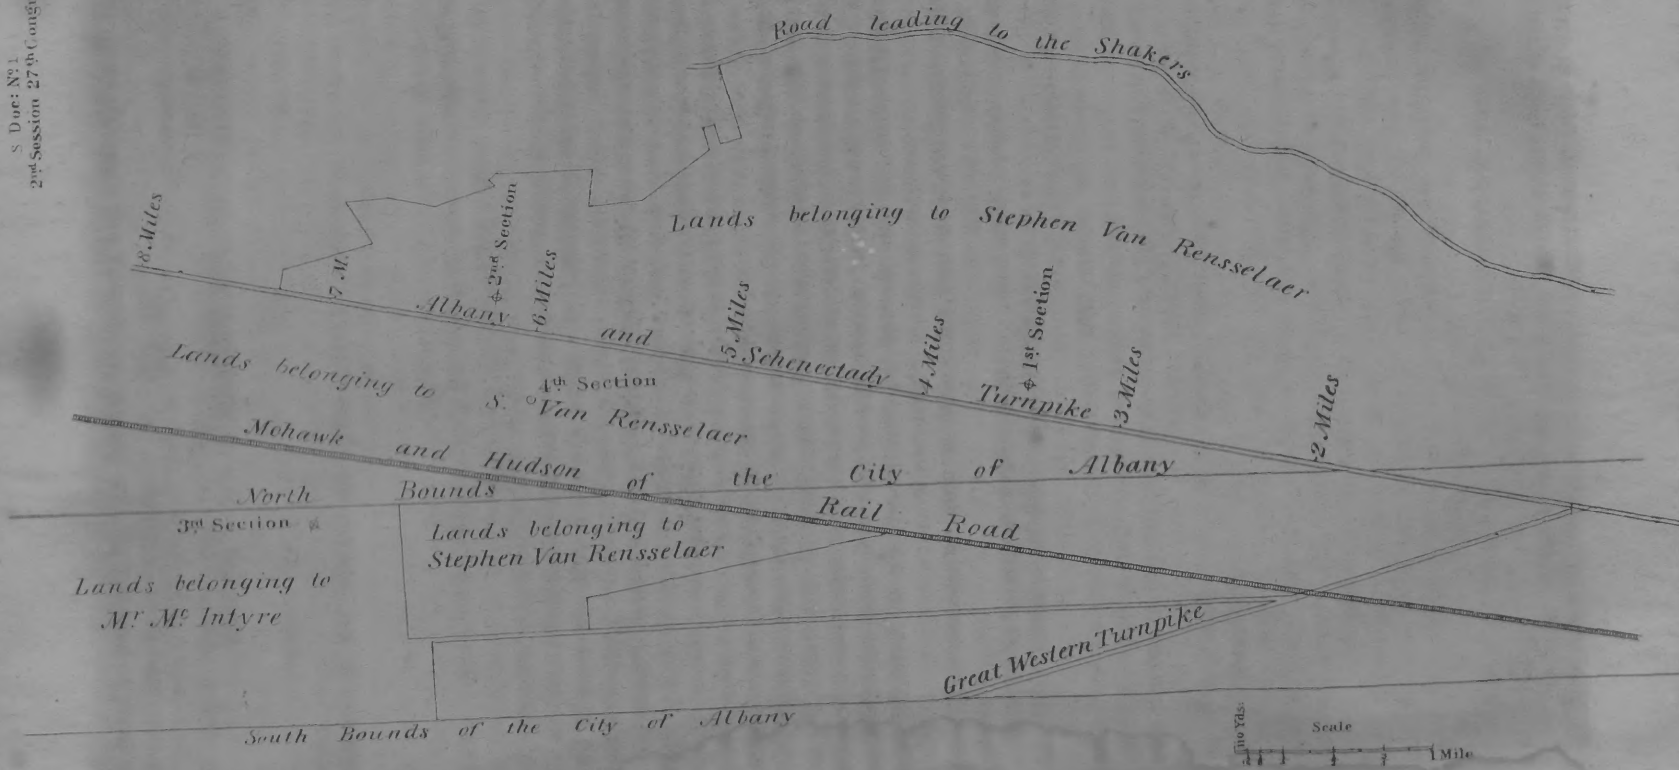 S Doc: No. 1
2nd Session 27th
Road leading to the Shakers
8 Miles
7 M.
2nd Section
6 Miles
5 Miles
4 Miles
1st Section
3 Miles
2 Miles
Lands belonging to Stephen Van Rensselaer
Albany and Schenectady Turnpike
Lands belonging to S. Van Rensselaer
4th Section
Mohawk and Hudson Rail Road
North Bounds of the City of Albany
3rd Section
Lands belonging to
Stephen Van Rensselaer
Lands belonging to
Mr. Mc. Intyre
Great Western Turnpike
South Bounds of the City of Albany
Yds:
Scale
1 Mile